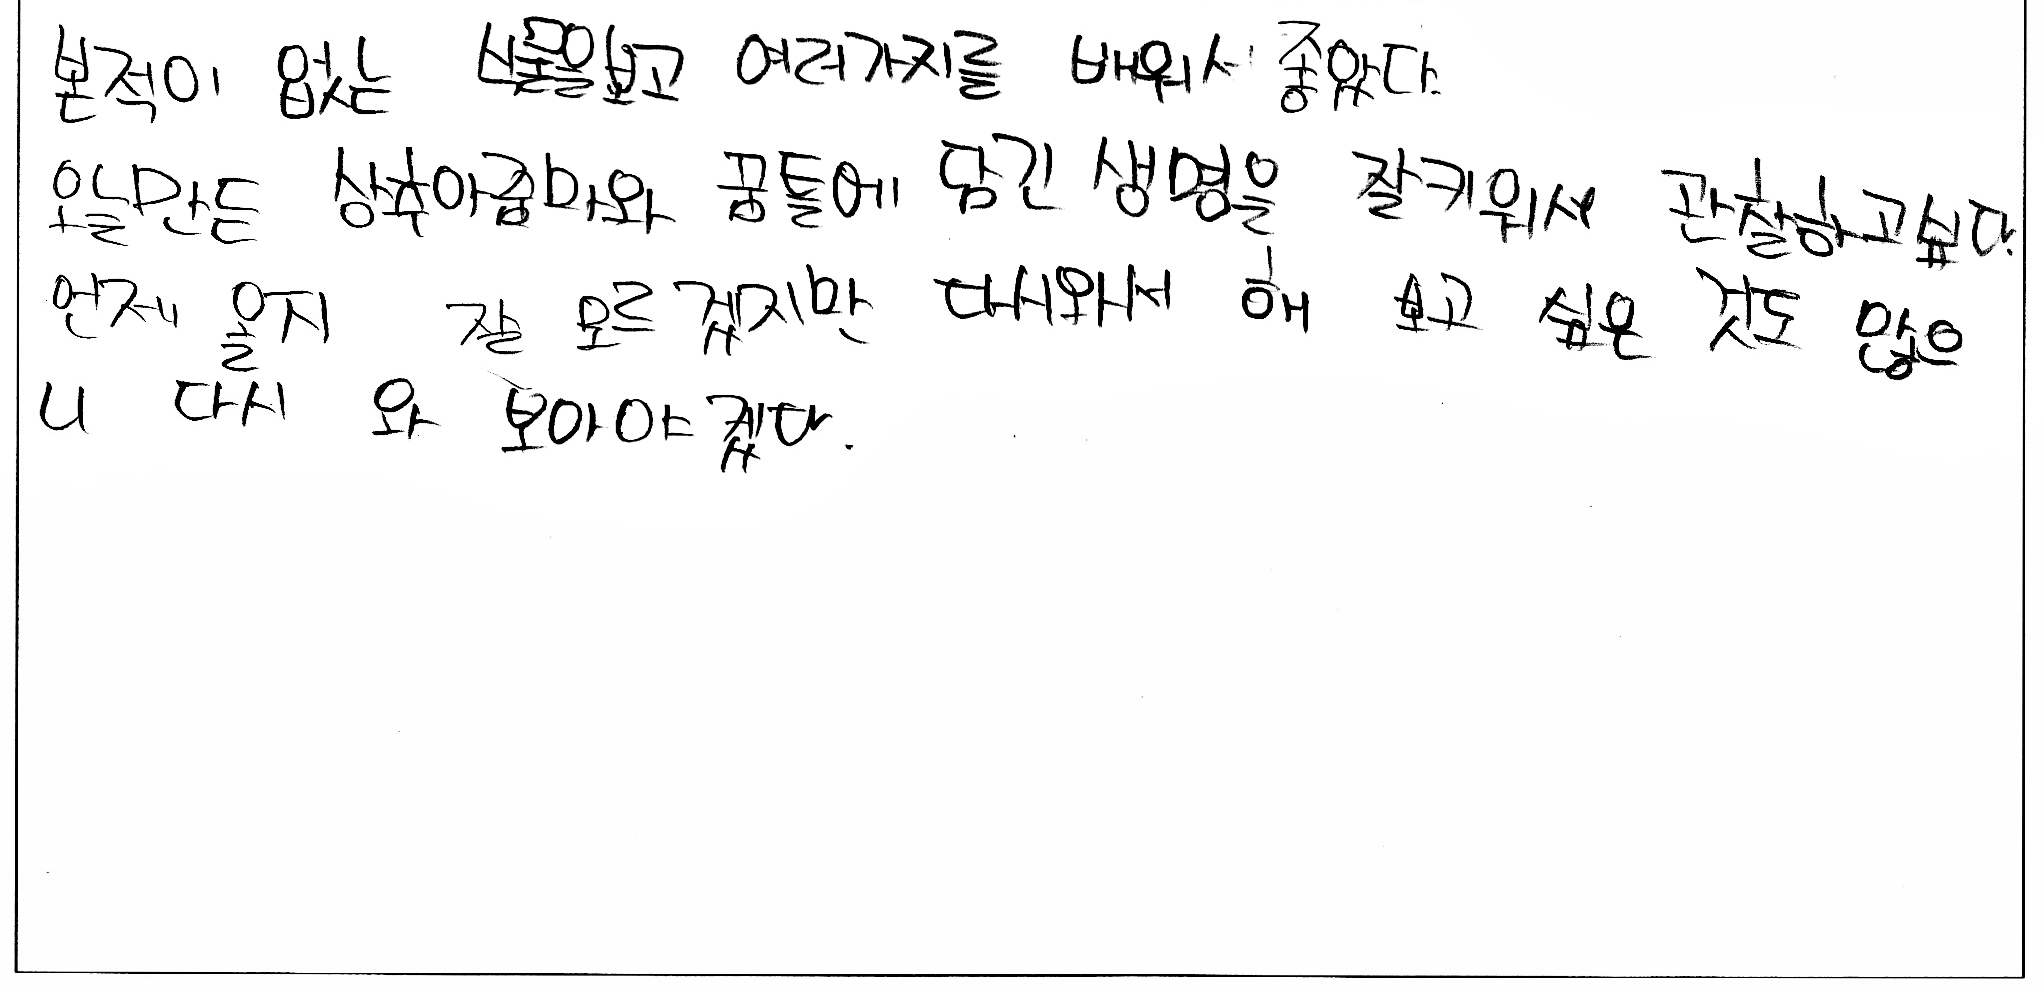 본적이 없는 식물을보고 여러가지를 배워서 좋았다.
오늘만든 상추아줌마와 꿈틀에 담긴 생명을 잘키워서 관찰하고싶다.
언제 올지 잘 모르겠지만 다시와서 해 보고 싶은 것도 많으
니 다시 와 보아야겠다.